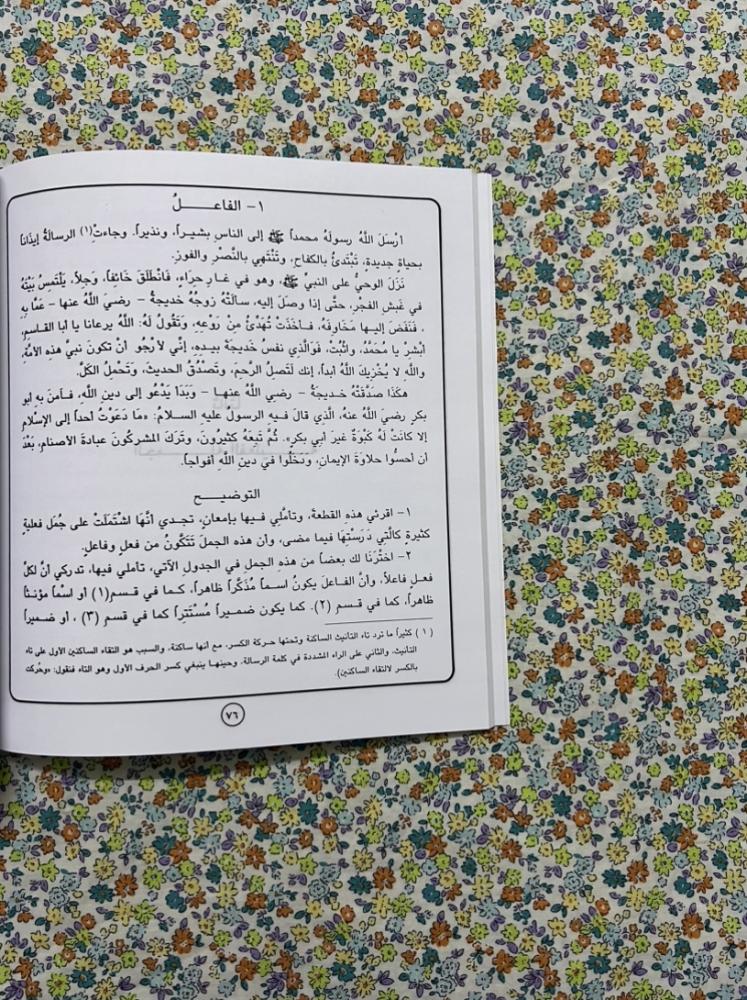 ١- الفاعـــــلُ
أرْسَلَ اللَّهُ رسولَهُ محمداً ﷺ إلى الناسِ بشيراً، ونذيراً. وجاءتْ(١) الرسالةُ إيذاناً
بحياةٍ جديدةٍ، تَبْتَدئُ بالكفاحِ، وتَنْتَهي بالنَّصْرِ والفوزِ.
نَزَلَ الوحيُ على النبيِّ ﷺ، وهو في غارِ حِراءٍ، فانْطَلَقَ خَائِفاً، وَجِلاً، يَلْتَمِسُ بَيْتَهُ
في غَبَشِ الفَجْرِ، حتَّى إذا وصلَ إليه، سألَتْهُ زَوْجُهُ خديجةُ - رضيَ اللَّهُ عنها - عَمَّا بِهِ
، فنَفَضَ إليها مَخَاوِفَهُ، فأخَذَتْ تُهَدِّئُ مِنْ رَوْعِهِ، وتَقُولُ لهُ: اللَّهُ يرعانا يا أبا القاسم،
أبْشِرْ يا مُحَمَّدُ، واثْبُتْ، فوَالَّذي نفسُ خديجةَ بيدِه، إنِّي لأرْجُو أنْ تكونَ نبيَّ هذهِ الأمَّةِ،
والله لا يُخْزِيكَ اللَّهُ أبداً، إنك لتَصِلُ الرَّحِمَ، وتَصْدُقُ الحديثَ، وتَحْمِلُ الكَلَّ.
هكَذَا صَدَّقَتْهُ خديجةُ - رضي اللَّهُ عنها - وبَدَأ يَدْعُو إلى دينِ اللَّهِ، فآمَنَ بهِ أبو
بكرٍ رضيَ اللَّهُ عنهُ، الَّذي قالَ فيهِ الرسولُ عليهِ السلامُ: «مَا دَعَوْتُ أحداً إلى الإسْلامِ
إلا كانَتْ لهُ كَبْوَةٌ غيرَ أبي بكرٍ». ثُمَّ تَبِعَهُ كثيرُونَ، وتَرَكَ المشركُونَ عبادةَ الأصنامِ، بَعْدَ
أن أحسُّوا حلاوَةَ الإيمانِ، ودَخَلُوا في دينِ اللَّهِ أفواجاً.
التوضيـــــح
١- اقرئي هذه القطعةَ، وتأمَّلي فيها بإمعانٍ، تجدي أنَّهَا اشْتَمَلَتْ على جُمَلٍ فعليةٍ
كثيرةٍ كالَّتي دَرَسْتِهَا فيما مضى، وأن هذه الجملَ تَتَكَوَّنُ من فعلٍ وفاعلٍ.
٢- اخْتَرْنَا لك بعضاً من هذِهِ الجملِ في الجدولِ الآتي، تأملي فيها، تدركي أنَّ لكلِّ
فعلٍ فاعلاً، وأنَّ الفاعلَ يكونُ اسماً مُذَكَّراً ظاهراً، كما في قسم(١) أو اسْماً مؤنثاً
ظاهراً، كما في قسم (٢). كما يكون ضميراً مُسْتَتراً كما في قسم (٣) ، أو ضميراً
(١) كثيراً ما ترد تاء التأنيث الساكنة وتحتها حركة الكسر، مع أنها ساكنة. والسبب هو التقاء الساكنين الأول على تاء
التأنيث. والثاني على الراء المشددة في كلمة الرسالة. وحينها ينبغي كسر الحرف الأول وهو التاء فنقول: «وحُركت
بالكسر لالتقاء الساكنين).
٧٦